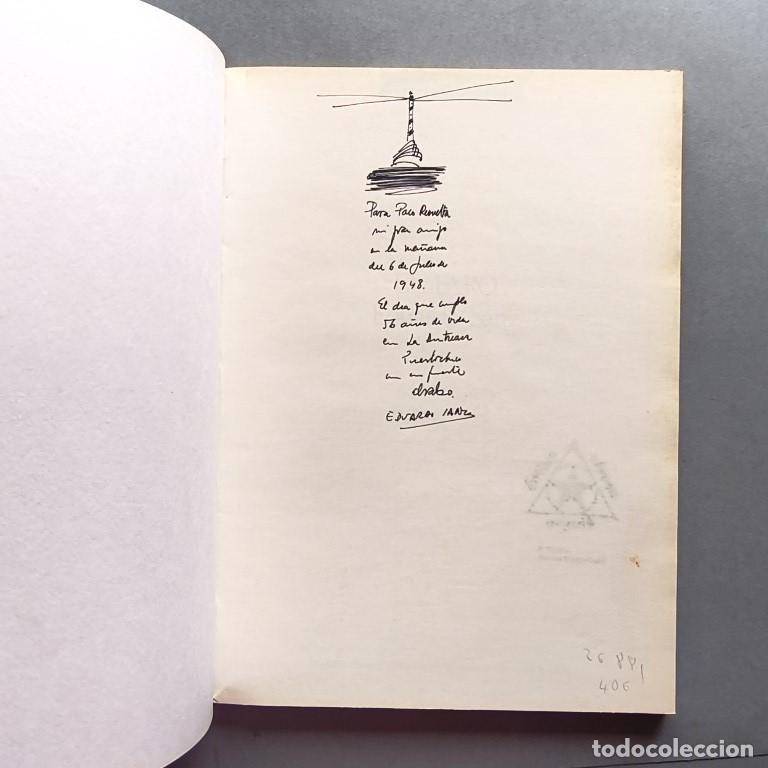 Para Paco
mi gran amigo
en la mañana
del 6 de Julio de
1948.
El dia que cumplo
56 años de vida
en La

en un fuerte
abrazo.
EDUARDO SANZ
26 881
406
todocoleccion